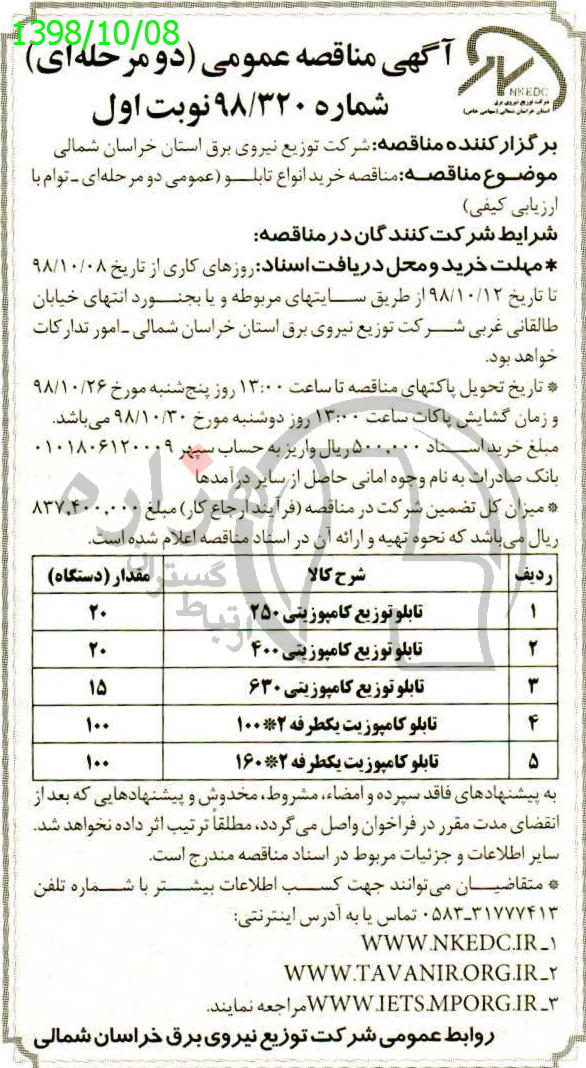 1398/10/08
NKEDC
شرکت توزیع نیروی برق
استان خراسان شمالی (سهامی خاص)
آگهی مناقصه عمومی (دو مرحله‌ای)
شماره ۹۸/۳۲۰ نوبت اول
برگزار کننده مناقصه: شرکت توزیع نیروی برق استان خراسان شمالی
موضوع مناقصه: مناقصه خرید انواع تابلو (عمومی دو مرحله‌ای ـ توام با
ارزیابی کیفی)
شرایط شرکت کنندگان در مناقصه:
* مهلت خرید و محل دریافت اسناد: روزهای کاری از تاریخ ۹۸/۱۰/۰۸
تا تاریخ ۹۸/۱۰/۱۲ از طریق سایتهای مربوطه و یا بجنورد انتهای خیابان
طالقانی غربی شرکت توزیع نیروی برق استان خراسان شمالی ـ امور تدارکات
خواهد بود.
* تاریخ تحویل پاکتهای مناقصه تا ساعت ۱۳:۰۰ روز پنج‌شنبه مورخ ۹۸/۱۰/۲۶
و زمان گشایش پاکات ساعت ۱۳:۰۰ روز دوشنبه مورخ ۹۸/۱۰/۳۰ می‌باشد.
مبلغ خرید اسناد ۵۰۰,۰۰۰ ریال واریز به حساب سپهر ۰۱۰۱۸۰۶۱۲۰۰۰۹
بانک صادرات به نام وجوه امانی حاصل از سایر درآمدها
* میزان کل تضمین شرکت در مناقصه (فرآیند ارجاع کار) مبلغ ۸۳۷,۴۰۰,۰۰۰
ریال می‌باشد که نحوه تهیه و ارائه آن در اسناد مناقصه اعلام شده است.
ردیف شرح کالا مقدار (دستگاه)
۱ تابلو توزیع کامپوزیتی ۲۵۰ ۲۰
۲ تابلو توزیع کامپوزیتی ۴۰۰ ۲۰
۳ تابلو توزیع کامپوزیتی ۶۳۰ ۱۵
۴ تابلو کامپوزیت یکطرفه ۲*۱۰۰ ۱۰۰
۵ تابلو کامپوزیت یکطرفه ۲*۱۶۰ ۱۰۰
به پیشنهادهای فاقد سپرده و امضاء، مشروط، مخدوش و پیشنهادهایی که بعد از
انقضای مدت مقرر در فراخوان واصل می گردد، مطلقاً ترتیب اثر داده نخواهد شد.
سایر اطلاعات و جزئیات مربوط در اسناد مناقصه مندرج است.
* متقاضیان می‌توانند جهت کسب اطلاعات بیشتر با شماره تلفن
۰۵۸۳-۳۱۷۷۷۴۱۳ تماس یا به آدرس اینترنتی:
۱ـ WWW.NKEDC.IR
۲ـ WWW.TAVANIR.ORG.IR
۳ـ WWW.IETS.MPORG.IR مراجعه نمایند.
روابط عمومی شرکت توزیع نیروی برق خراسان شمالی
هزاره
گستران
ارتباط